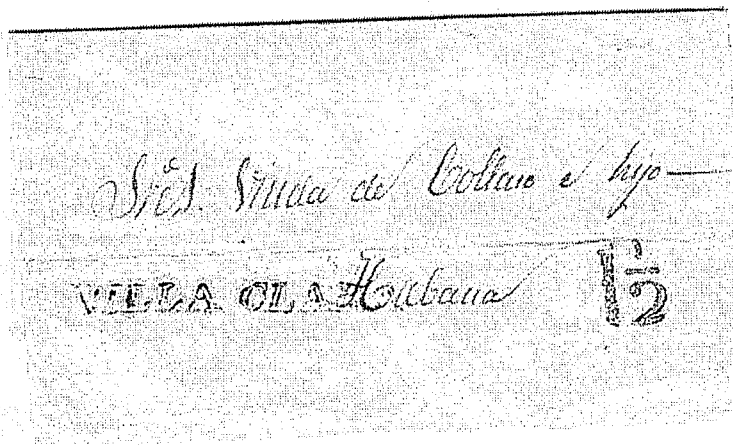 Sres. Viuda de Collazo e hijo
VILLA CLARA Habana 1½